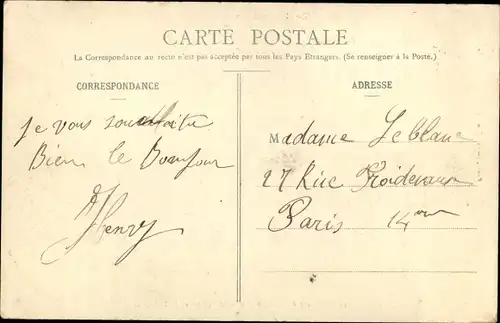 CARTE POSTALE
La Correspondance au recto n'est pas acceptée par tous les Pays Etrangers. (Se renseigner à la Poste.)
CORRESPONDANCE
Je vous souhaite
Bien le Bonjour
Henry
ADRESSE
Madame Leblanc
27 Rue Froidevaux
Paris 14eme